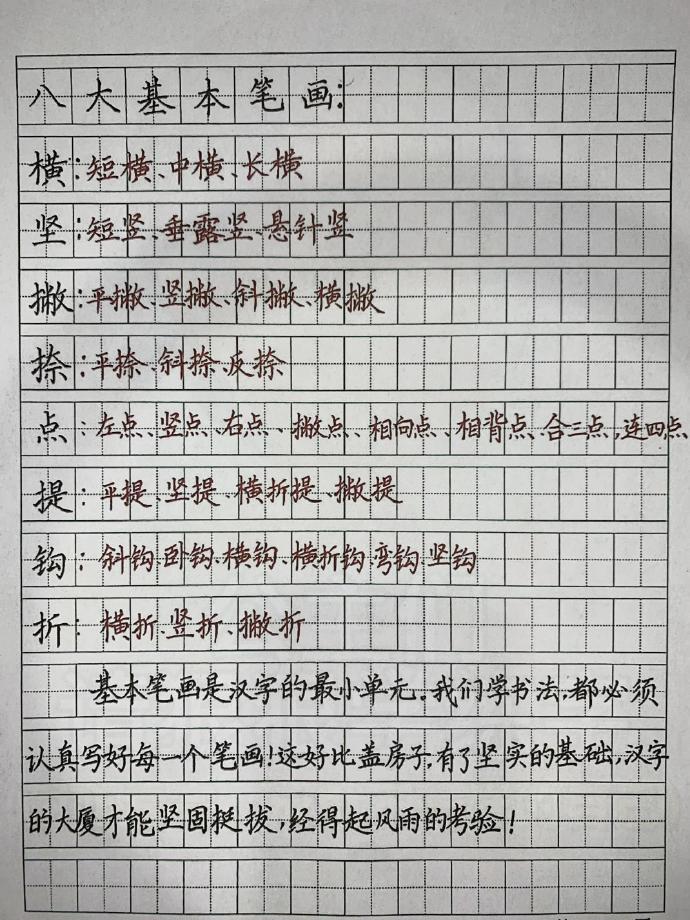 八大基本笔画：
横：短横、中横、长横
坚：短竖、垂露竖、悬针竖
撇：平撇、竖撇、斜撇、横撇
捺：平捺、斜捺、反捺
点：左点、竖点、右点、撇点、相向点、相背点、合三点，连四点
提：平提、坚提、横折提、撇提
钩：斜钩、卧钩、横钩、横折钩、弯钩、坚钩
折：横折、竖折、撇折
基本笔画是汉字的最小单元。我们学书法，都必须
认真写好每一个笔画！这好比盖房子，有了坚实的基础，汉字
的大厦才能坚固挺拔，经得起风雨的考验！